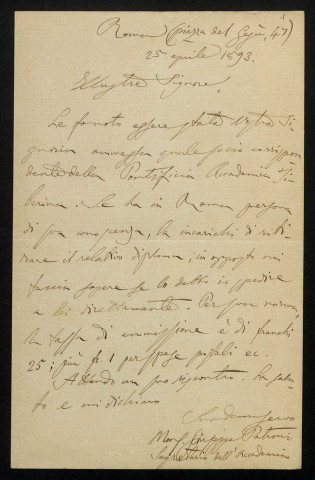 Roma (piazza del Gesù, 47)
25 aprile 1893.
Illustre Signore,
Le fo noto essere stata Vostra Si-
gnoria ammessa quale socio corrispon-
dente della Pontificia Accademia Ti-
berina. Se ha in Roma persona
di sua conoscenza, la incarichi di riti-
rare il relativo diploma; in opposto mi
faccia sapere se lo debbo spedire
a lei direttamente. Per sua norma,
la tassa di ammissione è di franchi
25; più fr. 1 per spese postali ec.
Attendo un suo riscontro. La salu-
to e mi dichiaro
Suo devmo servo
Mons. Giuseppe Patroni
Segretario dell'Accademia